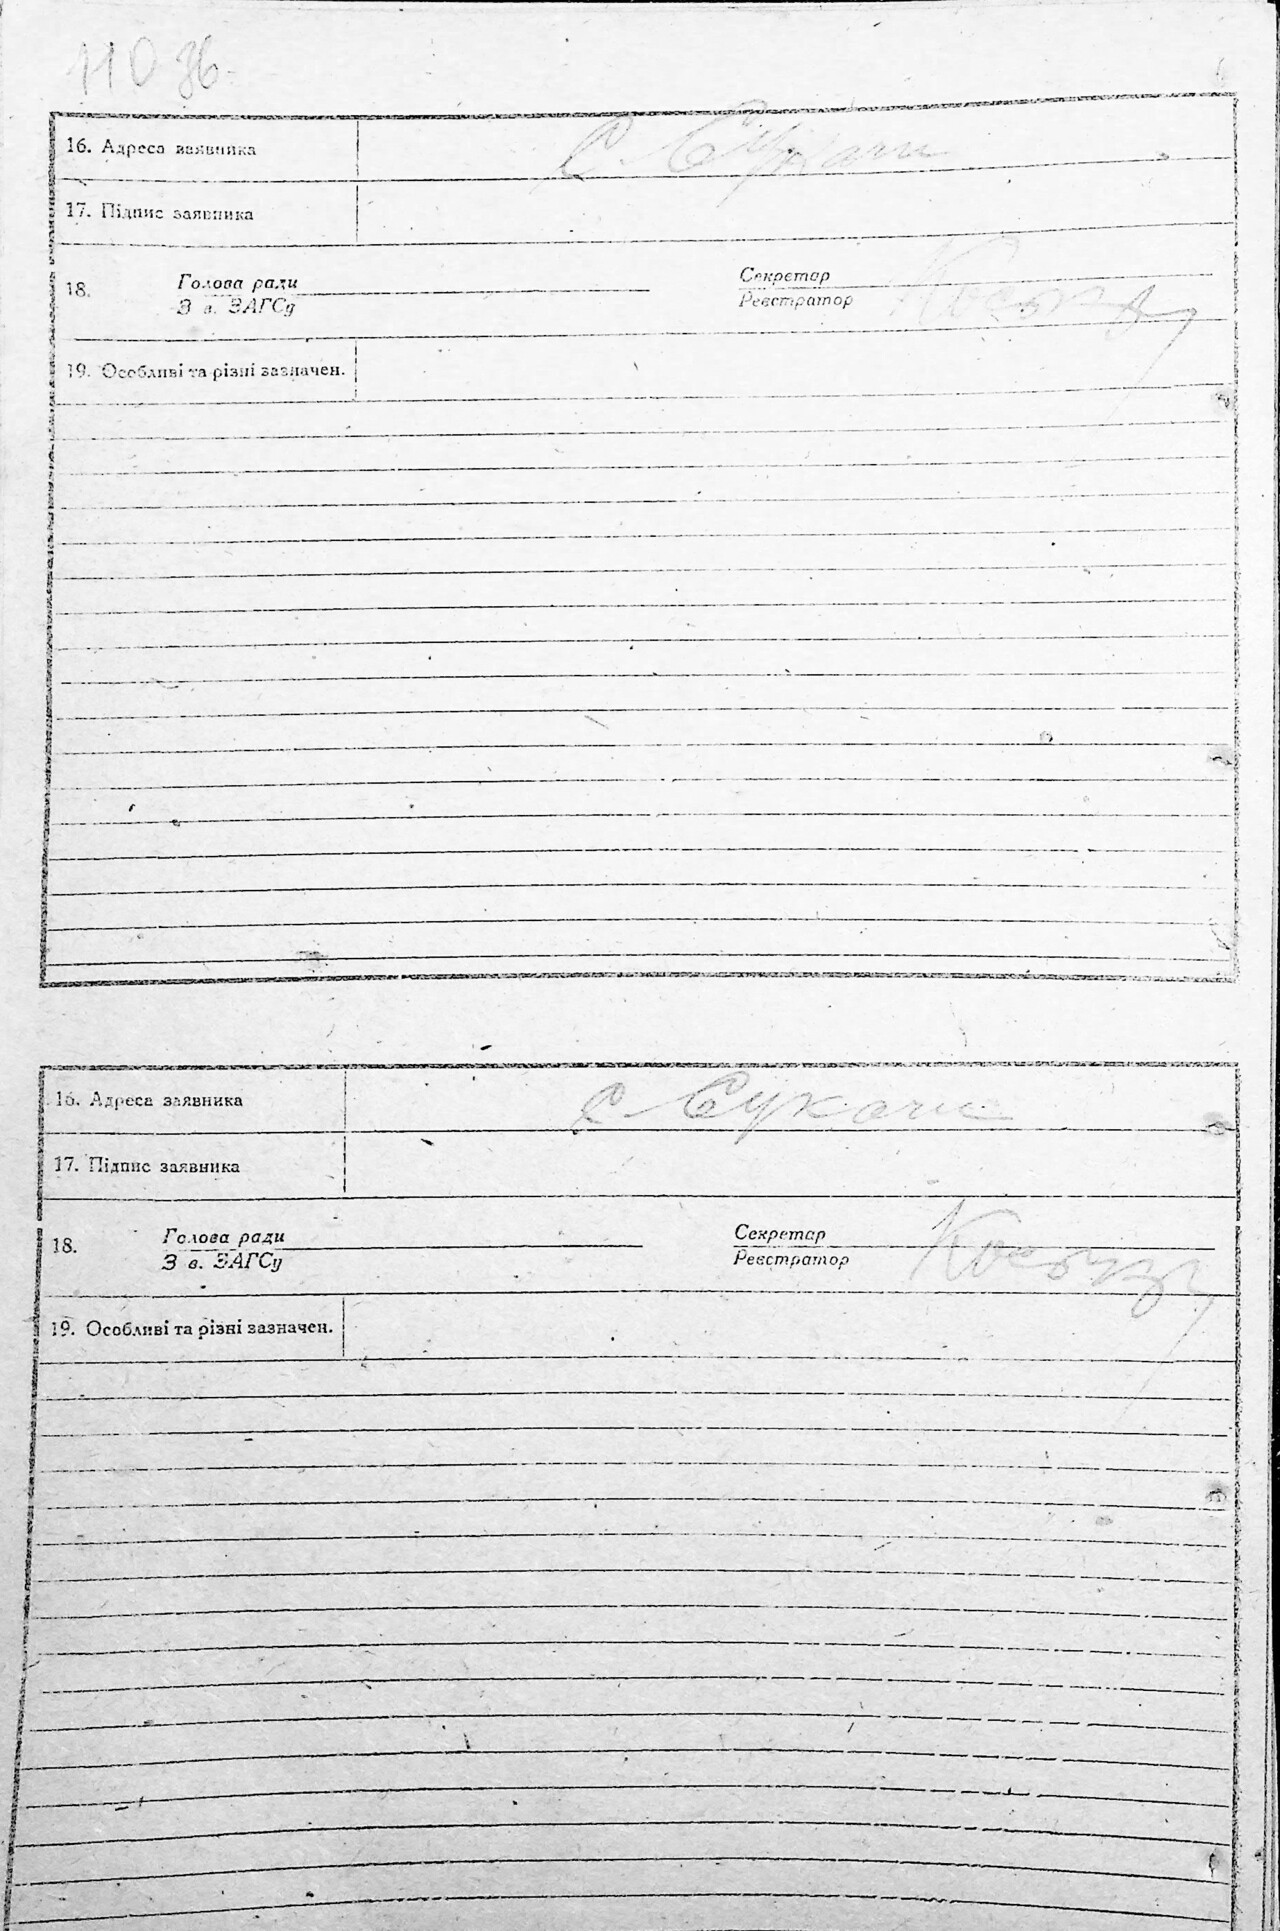 110 зв.
16. Адреса заявника С Сукачи
17. Підпис заявника
18. Голова ради Секретар
З в. ЗАГСу Реєстратор
19. Особливі та різні зазначен.
16. Адреса заявника С Сукачи
17. Підпис заявника
18. Голова ради Секретар
З в. ЗАГСу Реєстратор
19. Особливі та різні зазначен.